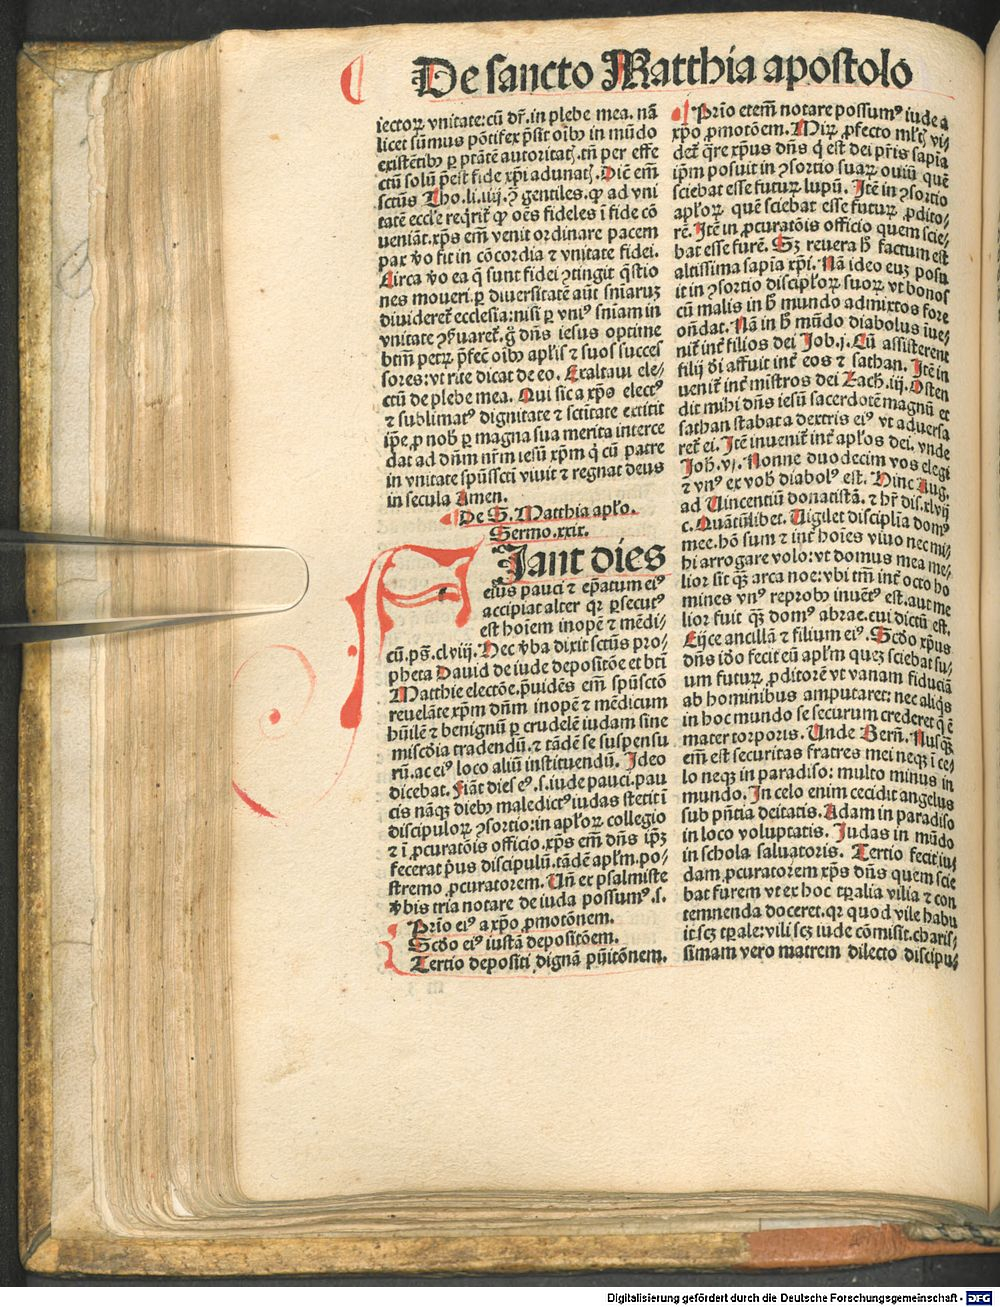 De sancto Matthia apostolo
iectoꝝ vnitate: cū dr̄. in plebe mea. nā
licet sūmus pōtifex p̄sit oībꝫ in mūdo
existētibꝫ ꝑ ptātē autoritatꝭ. tn̄ per effe
ctū solū p̄est fide xp̄i adunatꝭ. Diē em̄
sctūs Tho. li. iiij. ꝯ gentiles. ꝙ ad vni
tatē eccl'e req̄rit̄ ꝙ oēs fideles ī fide cō
ueniāt. xp̄s em̄ venit ordinare pacem
pax ꝟo fit in cōcordia ⁊ vnitate fidei.
Circa ꝟo ea q̄ sunt fidei ꝯtingit q̄stio
nes moueri. ꝑ diuersitatē aūt sn̄iaruꝫ
diuideret̄ ecclesia: nisi ꝑ vniꝰ sniam in
vnitate ꝯẜuaret̄. g̊ dn̄s iesus optime
btm̄ petrū p̄fec̄ oībꝫ apl'is ⁊ suos succes
sores: vt rite dicat de eo. Exaltaui ele-
ctū de plebe mea. Qui sic a xp̄o electꝰ
⁊ sublimatꝰ dignitate ⁊ sctītate extitit
ip̄e, ꝓ nob̄ ꝑ magna sua merita interce
dat ad dn̄m nr̄m iesū xp̄m q̇ cū patre
in vnitate spūssctī viuit ⁊ regnat deus
in secula Amen.
De S. Matthia apl'o.
Sermo. xxix.
Fiant dies
eius pauci ⁊ ep̄atum eiꝰ
accipiat alter qꝛ ꝑsecutꝰ
est hoīem inopē ⁊ mēdi-
cū. ps̄. cviij. Hec ꝟba dixit sctūs pro-
pheta Dauid de iude depositōe et btī
Matthie electōe. p̄uidēs em̄ spūsctō
reuelāte xp̄m dn̄m inopē ⁊ mēdicum
hūilē ⁊ benignū ꝑ crudelē iudam sine
miscd̄ia tradendū. ⁊ tādē se suspensu
rū. ac eiꝰ loco aliū instituendū. Ideo
dicebat. Fiāt dies eꝰ. s. iude pauci. pau
cis nāqꝫ diebꝫ maledictꝰ iudas stetit ī
discipuloꝝ ꝯsortio: in apl'oꝝ collegio
⁊ ī ꝓcuratōis officio. xp̄s em̄ dn̄s ip̄ꝫ
fecerat p̄us discipulū. tādē apl'm. po-
stremo ꝓcuratorem. Vn̄ ex psalmiste
ꝟbis tria notare de iuda possumꝰ. s.
Prīo eiꝰ a xp̄o ꝓmotōnem.
Scd̄o eiꝰ iustā depositōem.
Tertio depositi dignā pūitōnem.
Prīo etem̄ notare possumꝰ iude a
xp̄o ꝓmotōem. Miꝝ ꝓfecto ml'tꝭ vi/
det̄ q̄re xp̄us dn̄s q̇ est dei pr̄is sapīa
ip̄m posuit in ꝯsortio suaꝝ ouiū quē
sciebat esse futuꝝ lupū. Itē in ꝯsortio
apl'oꝝ quē sciebat esse futuꝝ ꝓdito-
rē. Itē in ꝓcuratōis officio quem scie-
bat esse furē. Sꝫ reuera h̄ factum est
altissima sapīa xp̄i. Nā ideo euꝫ posu
it in ꝯsortio discipl'oꝝ suoꝝ vt bonos
cū malis in h̄ mundo admixtos fore
on̄dat. Nā in h̄ mūdo diabolus īue-
nit̄ int̄ filios dei Job. j. Cū assisterent
filij dī affuit int̄ eos ⁊ sathan. Itē in
uenit̄ int̄ mīstros dei Zach. iij. Osten
dit mihi dn̄s iesū sacerdotē magnū et
sathan stabat a dextris eiꝰ vt aduersa
ret̄ ei. Itē inuenit̄ int̄ apl'os dei. vnde
Joh̄. vj. Nonne duodecim vos elegi
⁊ vnꝰ ex vob̄ diabolꝰ est. Hinc Aug.
ad Vincentiū donatistā. ⁊ hr̄ dis. xlvij
c. Quātūlibet. Vigilet disciplīa domꝰ
mee. hō sum ⁊ int̄ hoīes viuo nec mi/
hi arrogare volo: vt domus mea me/
lior sit qꝫ̄ arca noe: vbi tm̄ int̄ octo ho
mines vnꝰ reprobꝰ inuētꝰ est. aut me
lior fuit qꝫ̄ domꝰ abrae. cui dictū est.
Eijce ancillā ⁊ filium eiꝰ. Scd̄o xp̄us
dn̄s iđo fecit eū apl'm queꝫ sciebat su/
um futuꝝ ꝓditorē vt vanam fiduciā
ab hominibus amputaret: nec aliq̇s
in hoc mundo se securum crederet q̄ ē
mater torporis. Unde Bern̄. Nusqꝫ̄
em̄ est securitas fratres mei neqꝫ ī ce/
lo neqꝫ in paradiso: multo minus in
mundo. In celo enim cecidit angelus
sub p̄ntia deitatis. Adam in paradiso
in loco voluptatis. Judas in mūdo
in schola saluatoris. Tertio fecit iu/
dam ꝓcuratorem xp̄s dn̄s quem scie
bat furem vt ex hoc tp̄alia vilia ⁊ con
temnenda doceret. qꝛ quod vile habu
it scꝫ tp̄ale: vili scꝫ iude cōmisit. charis/
simam vero matrem dilecto discipu/
Digitalisierung gefördert durch die Deutsche Forschungsgemeinschaft - DFG